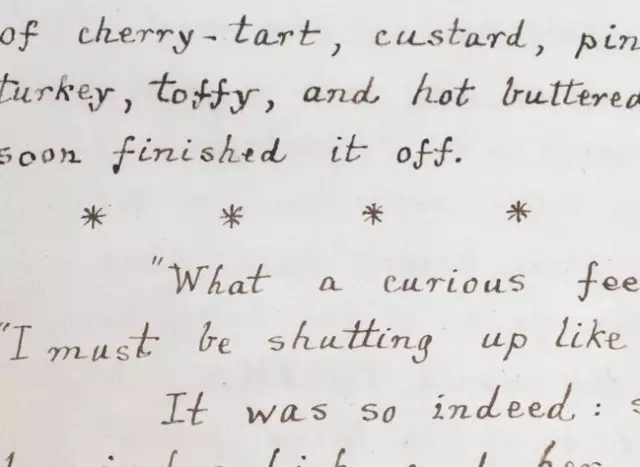 of cherry-tart, custard, pin
turkey, toffy, and hot buttered
soon finished it off.
* * * *
"What a curious fee
"I must be shutting up like
It was so indeed: s